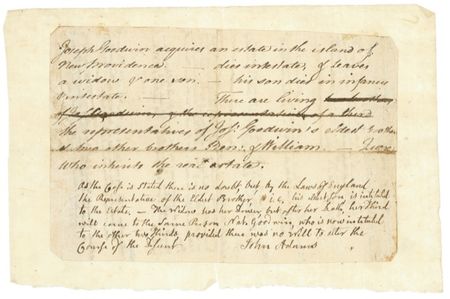 Joseph Goodwin acquires an estate in the island of
New Providence. — dies intestate, & leaves
a widow & one son. — his son dies in infancy
& intestate. — There are living
the representatives of Jos. Goodwin's eldest brother
& two other brothers Benj. & William. — Quere
Who inherits the real estate.
As the Case is stated there is no doubt but by the Laws of England
the Representative of the Eldest Brother, i.e. his eldest son is intituled
to the Estate. — The Widow has her Dower, but after her death, her third
will come to the same Person, who is now intituled
to the other two thirds, provided there was no will to alter the
Course of the Descent
John Adams